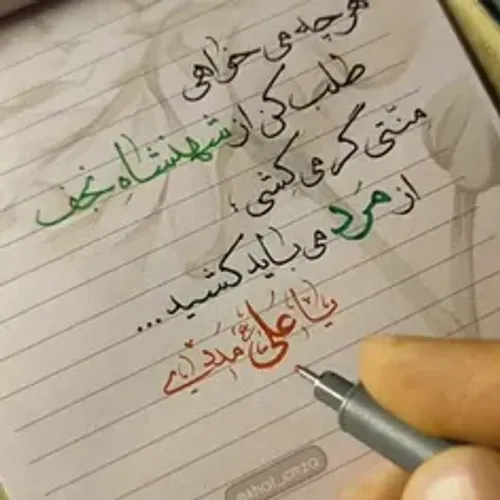 هرچه می خواهی
طلب کن از شهنشاهِ نجف
مِنّتی گر می کِشی؛
از مَرد می باید کشید...
یا علی مددی